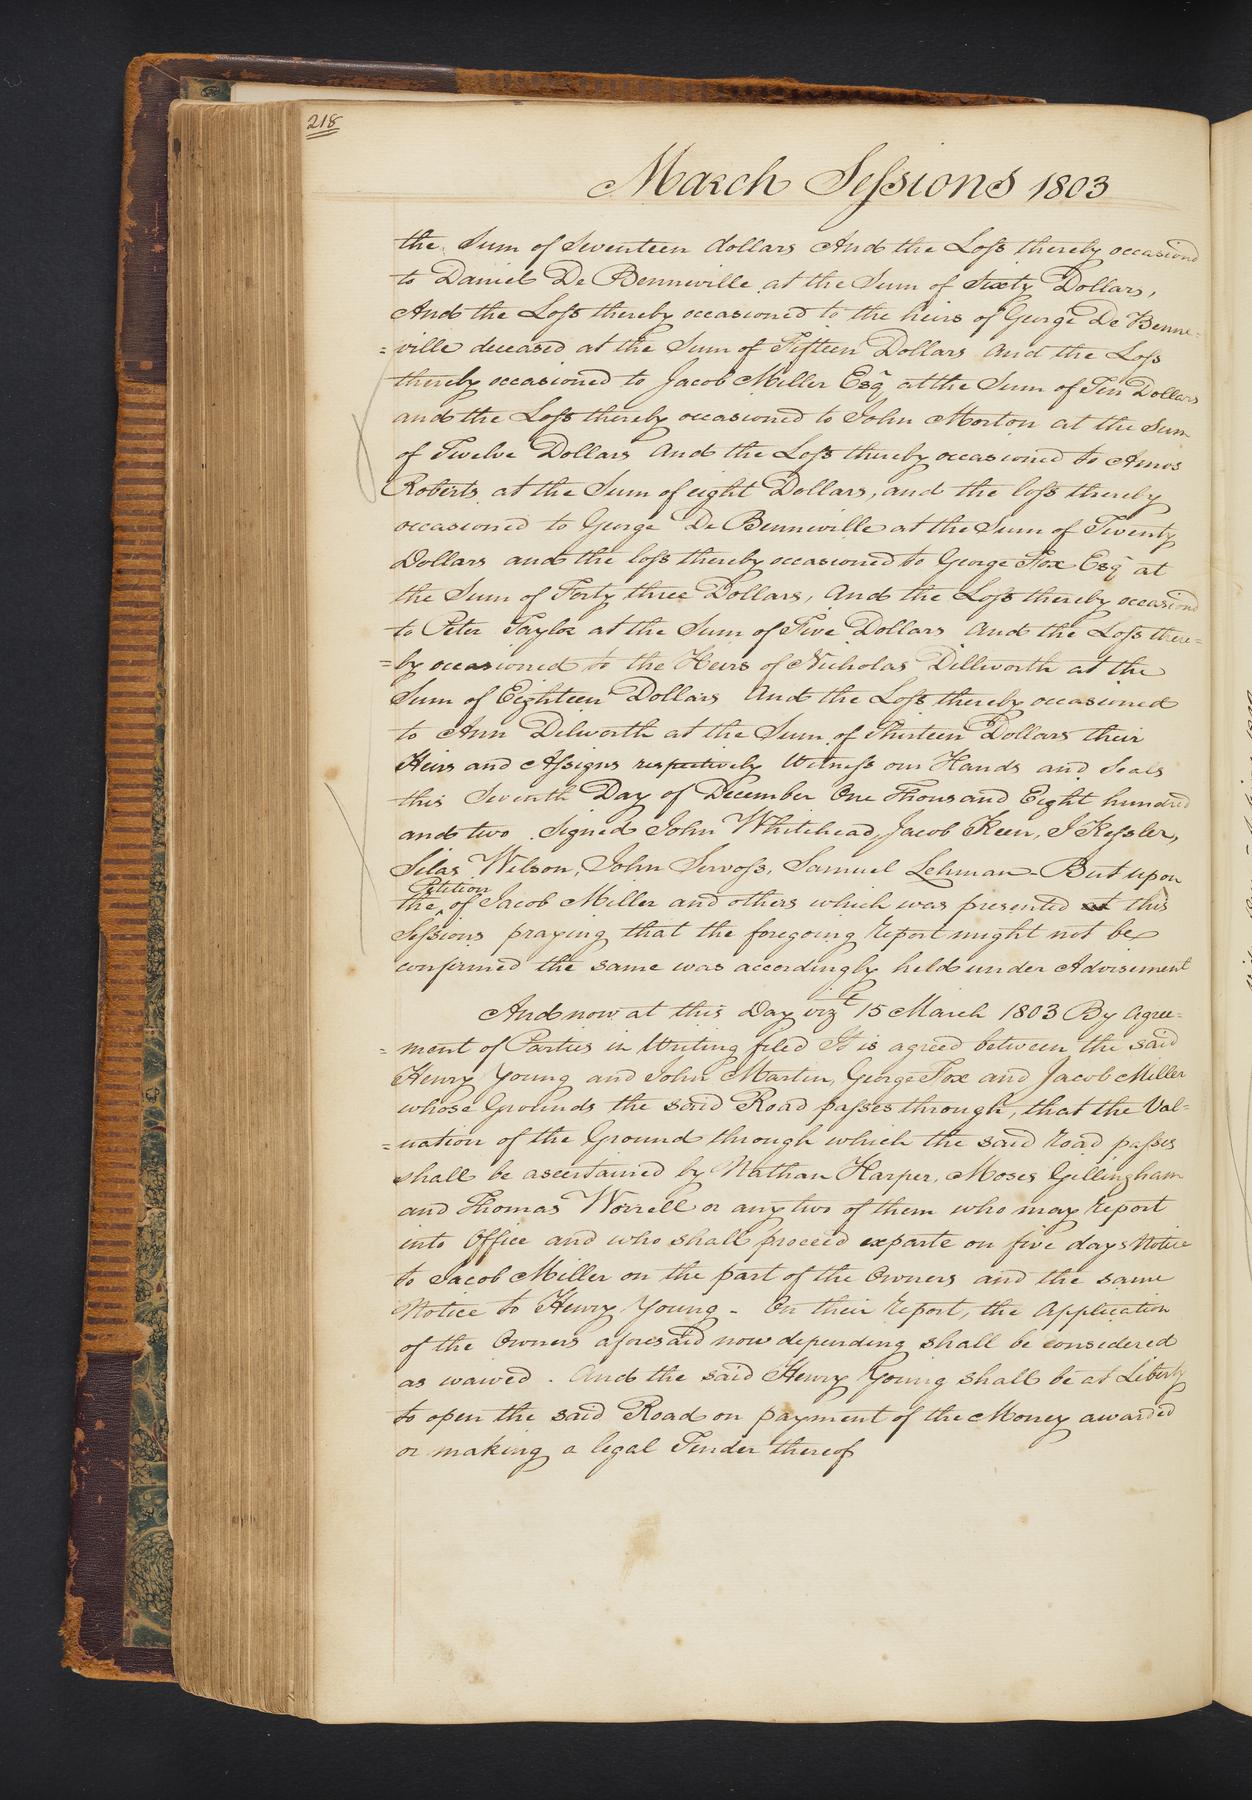 218
March Sessions 1803
the Sum of Seventeen dollars And the Loss thereby occasiond
to Daniel De Benneville at the Sum of Sixty Dollars,
And the Loss thereby occasioned to the heirs of George De Benne=
=ville deceased at the Sum of Fifteen Dollars And the Loss
thereby occasioned to Jacob Miller Esqr at the Sum of Ten Dollars
and the Loss thereby occasioned to John Morton at the Sum
of Twelve Dollars And the Loss thereby occasioned to Amos
Roberts at the Sum of eight Dollars, and the loss thereby
occasioned to George De Benneville at the Sum of Twenty
Dollars and the loss thereby occasioned to George Fox Esqr at
the Sum of Forty three Dollars, And the Loss thereby occasiond
to Peter Taylor at the Sum of Five Dollars And the Loss there=
=by occasioned to the Heirs of Nicholas Dillworth at the
Sum of Eighteen Dollars And the Loss thereby occasioned
to Ann Delworth at the Sum of Thirteen Dollars their
Heirs and Assigns respectively Witness our Hands and Seals
this Seventh Day of December One Thousand Eight hundred
and two Signed John Whitehead, Jacob Keen, J Kessler,
Silas Wilson, John Servoss, Samuel Lehman - But upon
Petition
the ^ of Jacob Miller and others which was presented at this
Sessions praying that the foregoing report might not be
confirmed the same was accordingly held under Advisement
And now at this Day vizt 15 March 1803 By Agree=
=ment of Parties in Writing filed It is agreed between the said
Henry Young and John Martin, George Fox and Jacob Miller
whose Grounds the said Road passes through, that the Val=
=uation of the Ground through which the said road passes
shall be ascertained by Nathan Harper, Moses Gillingham
and Thomas Worrell or any two of them who may report
into Office and who shall proceed exparte on five days Notice
to Jacob Miller on the part of the Owners and the same
Notice to Henry Young - On their report, the Application
of the Owners aforesaid now depending shall be considered
as waived . And the said Henry Young shall be at Liberty
to open the said Road on payment of the Money awarded
or making a legal Tender thereof